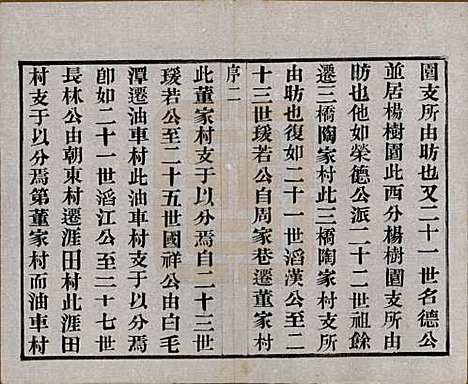 園支所由昉也又二十一世名德公
並居楊樹園此西分楊樹園支所由
昉也他如榮德公派二十二世祖餘
遷三橋陶家村此三橋陶家村支所
由昉也復如二十一世滔漢公至二
十三世瑗若公自周家巷遷董家村
序二
此董家村支于以分焉自二十三世
瑗若公至二十五世國祥公由白毛
潭遷油車村此油車村支于以分焉
卽如二十一世滔江公至二十七世
長林公由朝東村遷涯田村此涯田
村支于以分焉第董家村而油車村